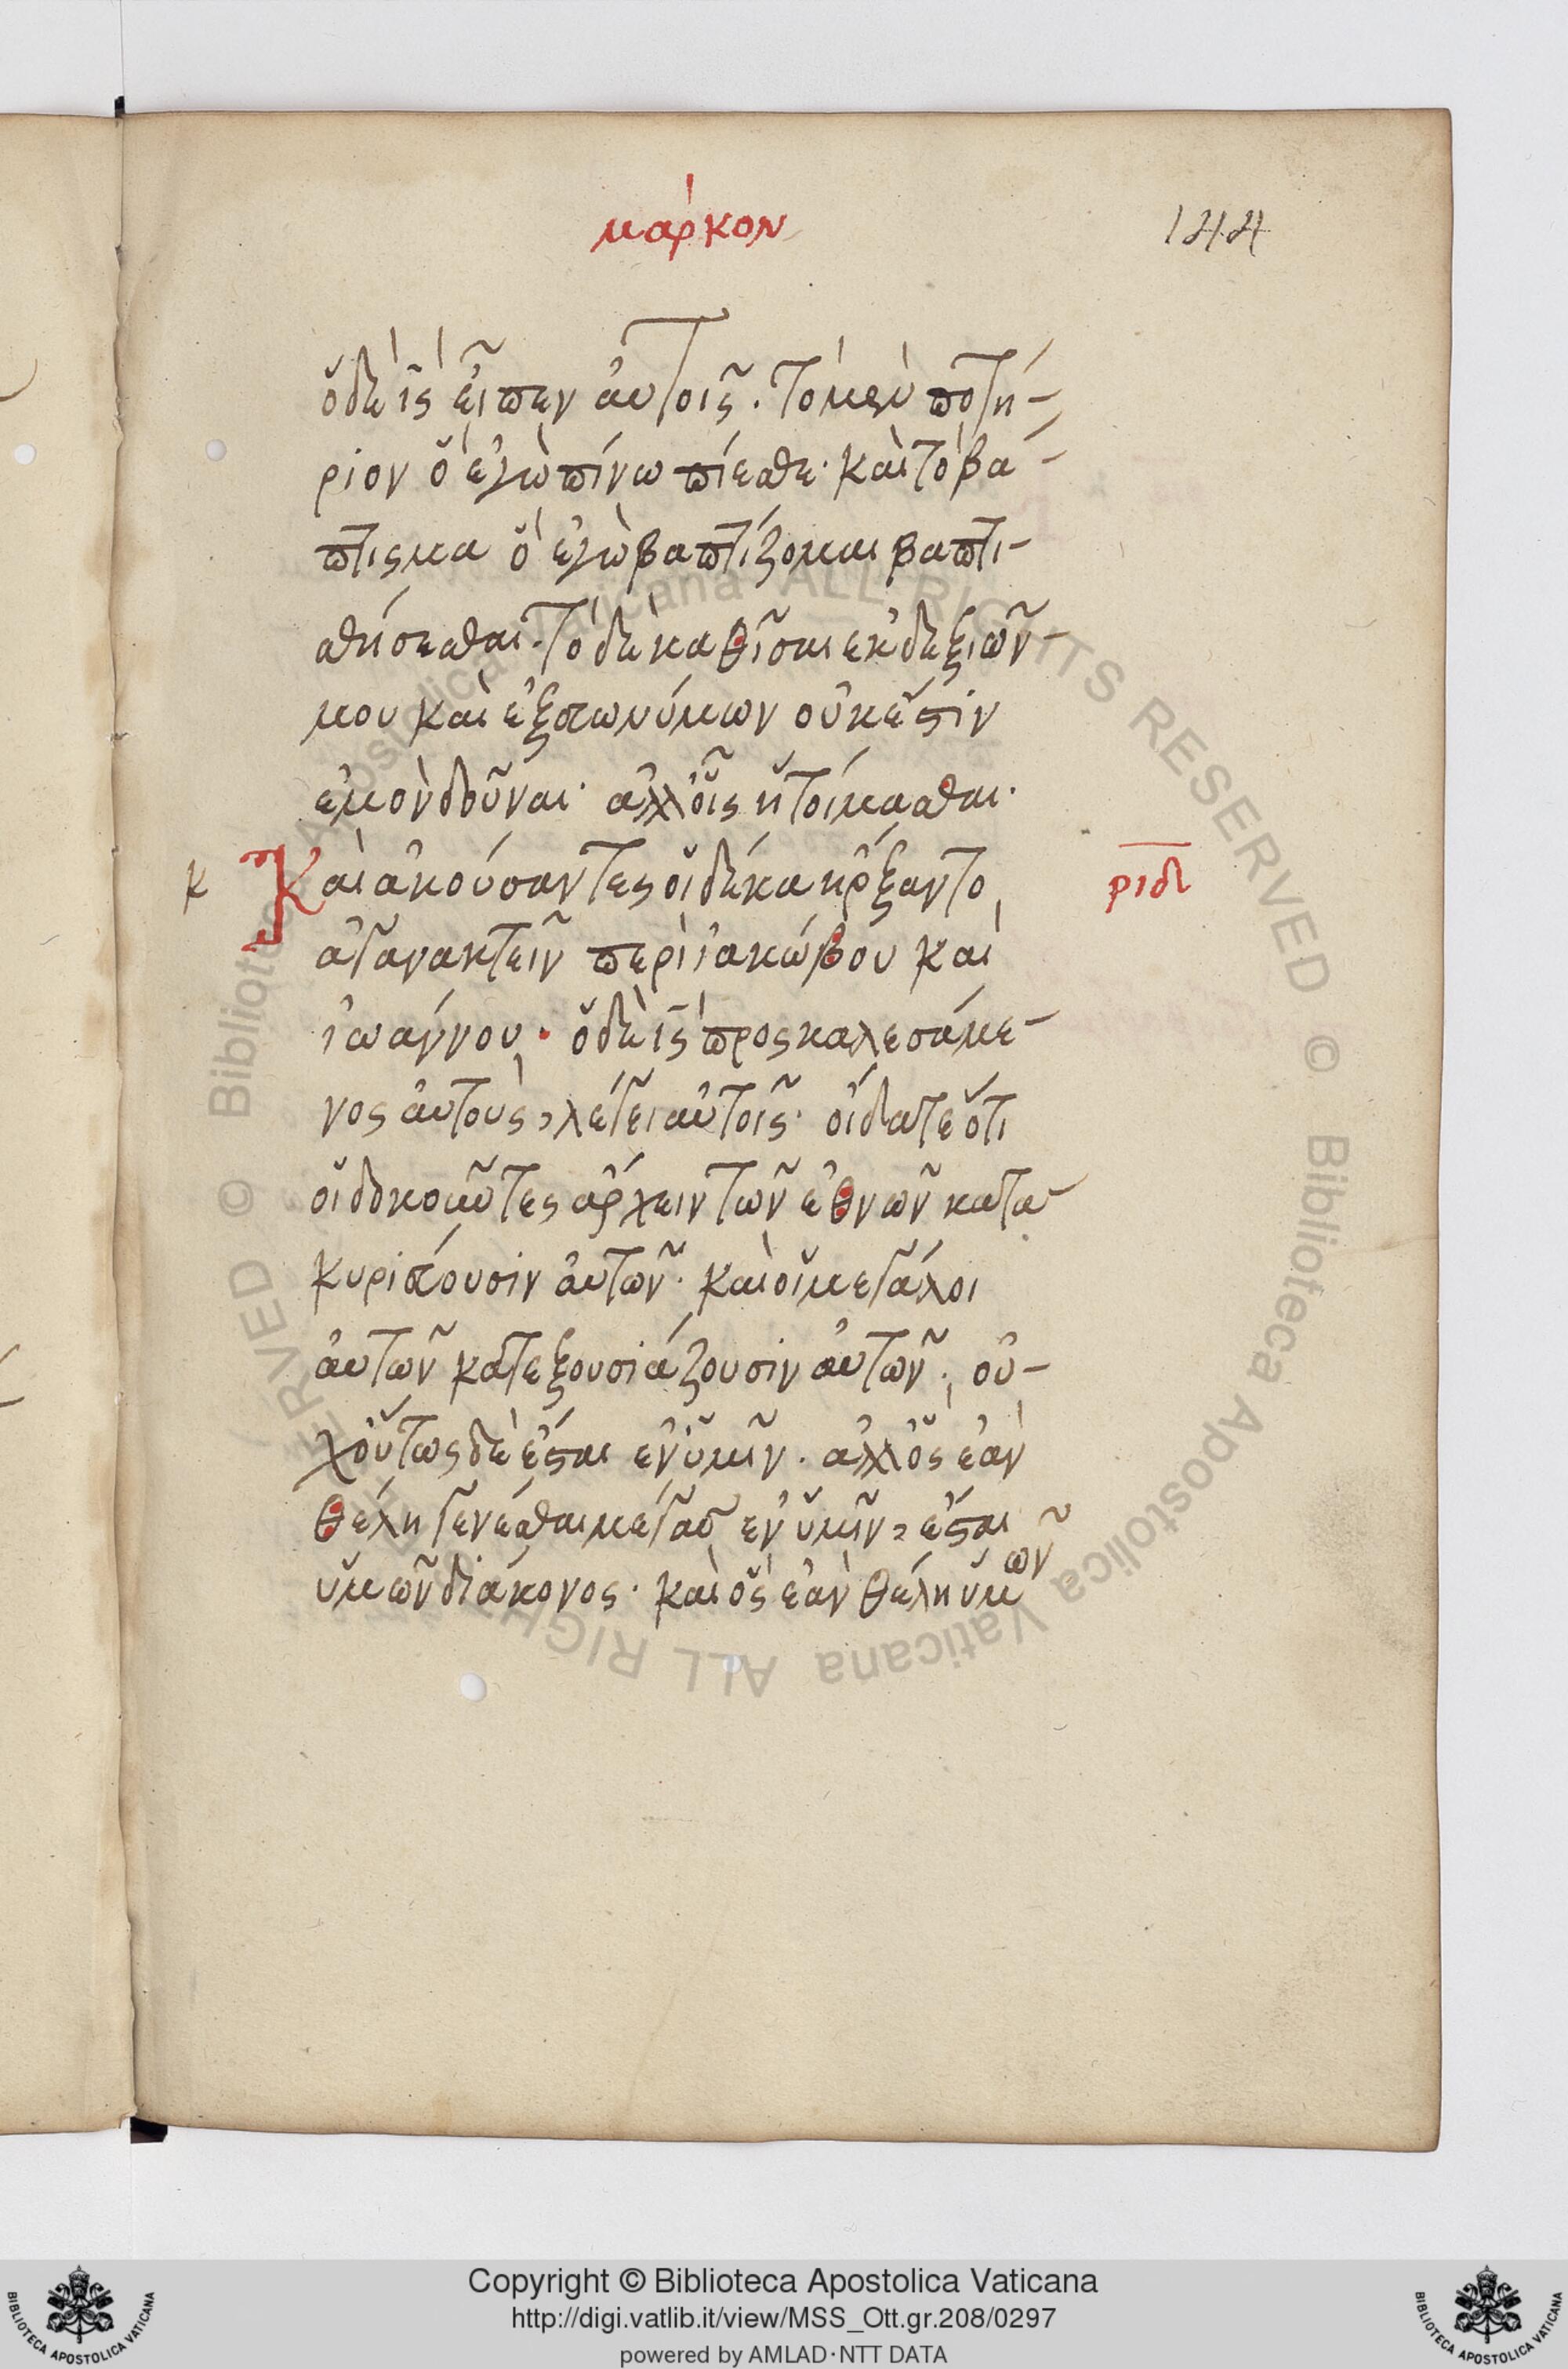 μάρκον
144
ὁ δὲ ἰ̅ς̅ εἶπεν αὐτοῖς. τὸ μὲν ποτή-
ριον ὃ ἐγὼ πίνω πίεσθε· καὶ τὸ βά-
πτισμα ὃ ἐγὼ βαπτίζομαι βαπτι-
σθήσεσθαι. τὸ δὲ καθῖσαι ἐκ δεξιῶν
μου καὶ ἐξ εὐωνύμων οὐκ ἔστιν
ἐμὸν δοῦναι· ἀλλ' οἷς ἡτοίμασθαι.
κ
Καὶ ἀκούσαντες οἱ δέκα ἤρξαντο
ριδ
ἀγανακτεῖν περὶ ἰακώβου καὶ
ἰωάννου· ὁ δὲ ἰ̅ς̅ προσκαλεσάμε-
νος αὐτοὺς, λέγει αὐτοῖς· οἴδατε ὅτι
οἱ δοκοῦντες ἄρχειν τῶν ἐθνῶν κατα
κυριεύουσιν αὐτῶν· καὶ οἱ μεγάλοι
αὐτῶν κατεξουσιάζουσιν αὐτῶν· οὐ-
χ οὕτως δὲ ἔσται ἐν ὑμῖν. ἀλλ' ὃς ἐὰν
θέλη γενέσθαι μέγας ἐν ὑμῖν, ἔσται
ὑμῶν διάκονος· καὶ ὃς ἐὰν θέλη ὑμῶν
Copyright © Biblioteca Apostolica Vaticana
http://digi.vatlib.it/view/MSS_Ott.gr.208/0297
powered by AMLAD·NTT DATA